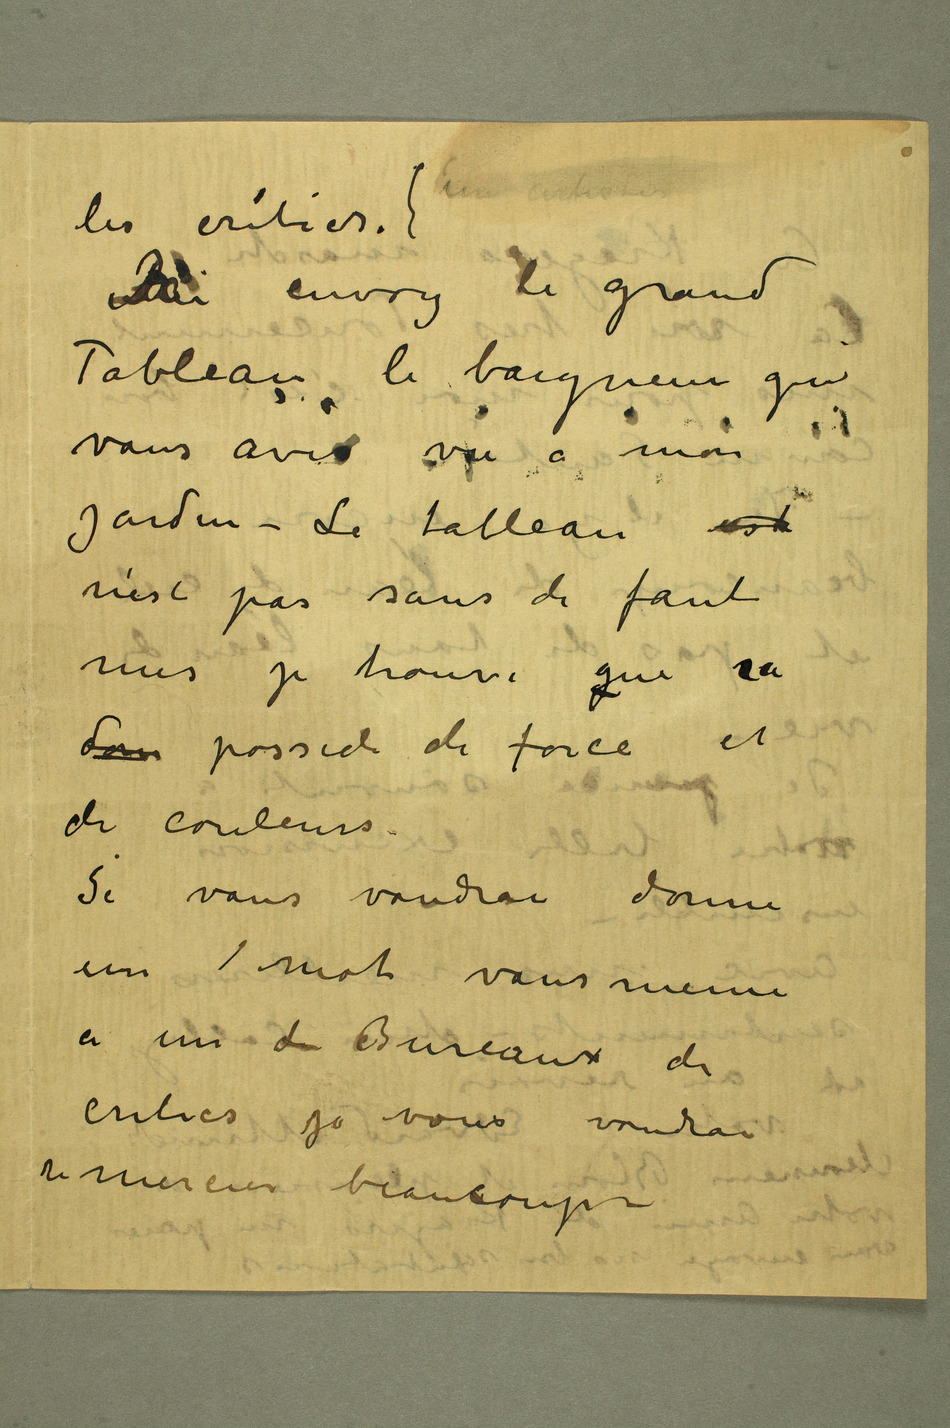 les critics.
envoy le grand
Tableau, le baigneur qui
vous aves vu a mon
jardin – Le tableau est
n'est pas sans de faut
mes je trouve que sa
possede de force et
de couleurs.
Si vous voudrai donne
un / mot vous meme
a un de Bureaux de
critics je vous voudrai
remercier beaucoup –